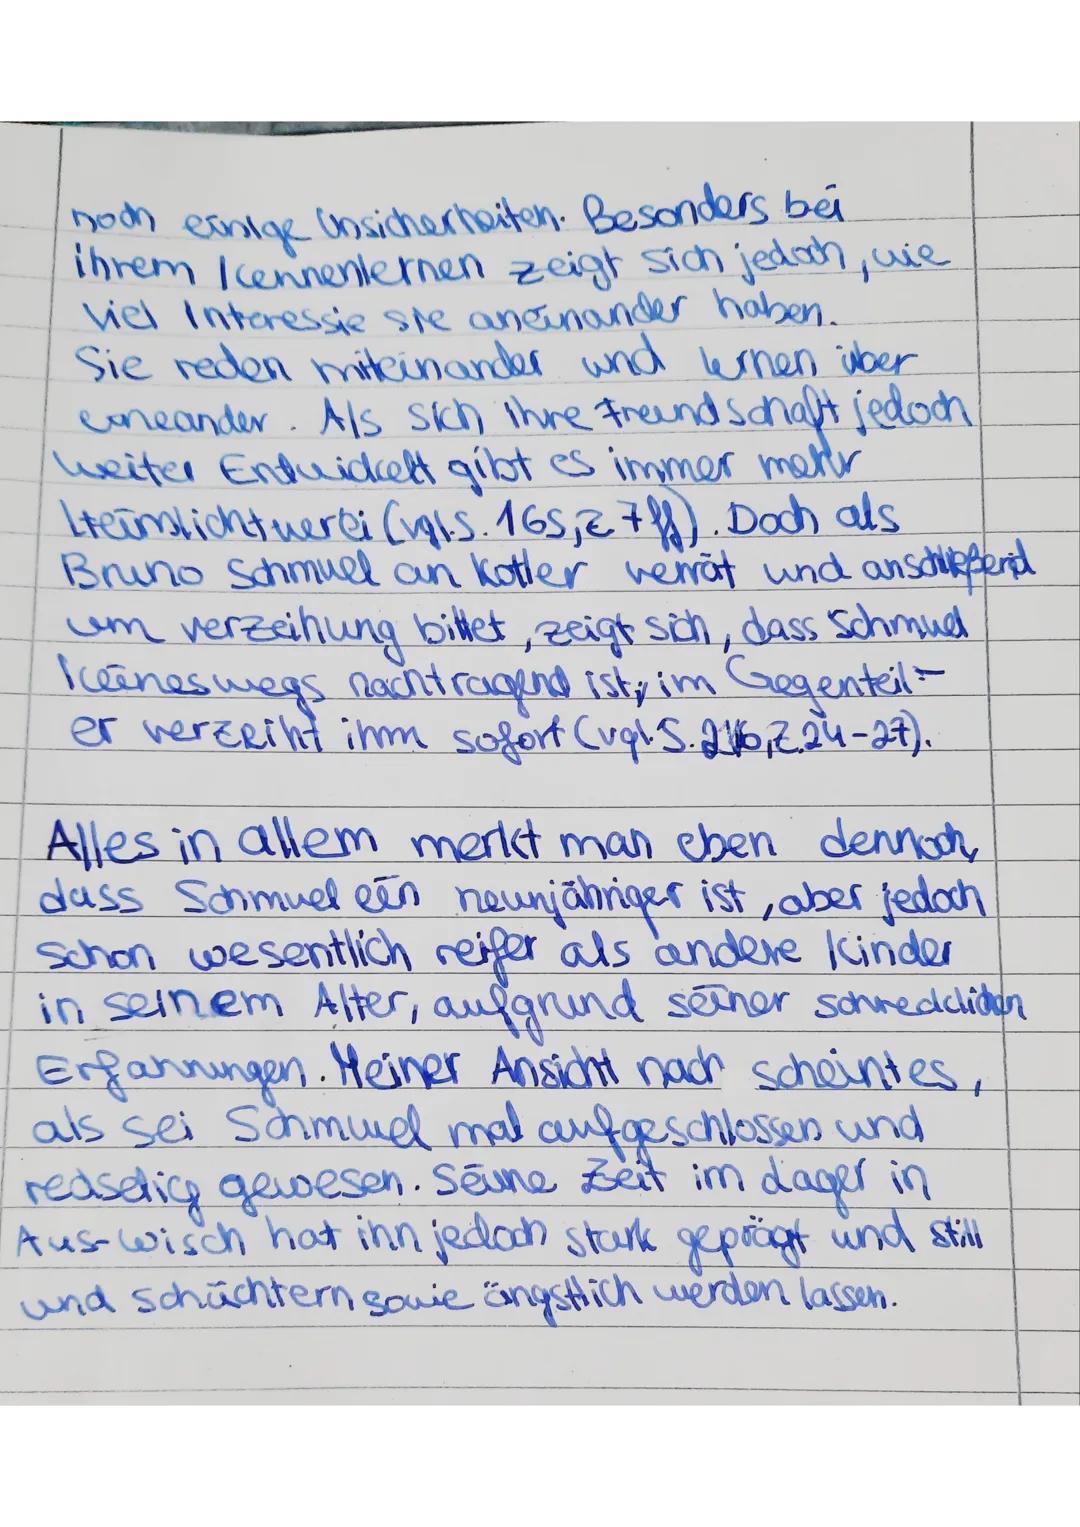 noch einige Unsicherheiten. Besonders bei
ihrem Kennenlernen zeigt sich jedoch, wie
viel Interessie sie aneinander haben.
Sie reden miteinander und lernen über
einander. Als sich ihre Freundschaft jedoch
weiter Entwickelt gibt es immer mehr
(vgl.S. 165, Z 7ff). Doch als
Bruno Schmuel an Kotler verrät und anschließend
um verzeihung bittet, zeigt sich, dass Schmuel
keineswegs nachtragend ist, im Gegenteil -
er verzeiht ihm sofort (vgl. S. Z. 24-27).
Alles in allem merkt man eben dennoch,
dass Schmuel ein neunjähriger ist, aber jedoch
schon wesentlich reifer als andere Kinder
in seinem Alter, aufgrund seiner schrecklichen
Erfahrungen. Meiner Ansicht nach scheint es,
als sei Schmuel mal aufgeschlossen und
redselig gewesen. Seine Zeit im Lager in
Aus-Wisch hat ihn jedoch stark geprägt und still
und schüchtern sowie ängstlich werden lassen.